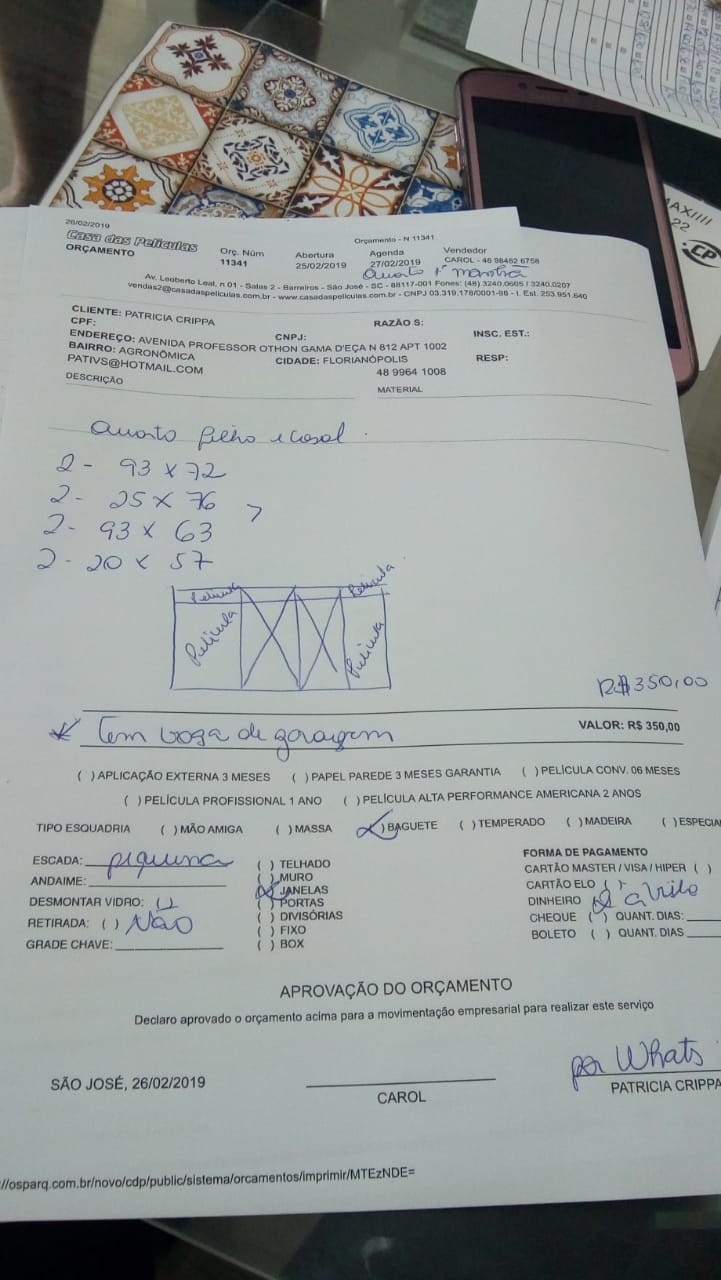 26/02/2019
Orçamento - N 11341
Casa das Películas
ORÇAMENTO
Orç. Núm
11341
Abertura
25/02/2019
Agenda
27/02/2019
Vendedor
CAROL - 48 98482 6758
Quarta 1ª manhã
Av. Leoberto Leal, n 01 - Salas 2 - Barreiros - São José - SC - 88117-001 Fones: (48) 3240.0605 / 3240.0207
vendas2@casadaspeliculas.com.br - www.casadaspeliculas.com.br - CNPJ 03.319.178/0001-98 - I. Est. 253.951.640
CLIENTE: PATRICIA CRIPPA
RAZÃO S:
CPF:
CNPJ:
INSC. EST.:
ENDEREÇO: AVENIDA PROFESSOR OTHON GAMA D'EÇA N 812 APT 1002
BAIRRO: AGRONÔMICA
CIDADE: FLORIANÓPOLIS
RESP:
PATIVS@HOTMAIL.COM
48 9964 1008
DESCRIÇÃO
MATERIAL
Quarto filho e casal.
2 - 93 x 72
2 - 25 x 76
2 - 93 x 63
2 - 20 x 57
Película
Película
Película
Película
R$350,00
VALOR: R$ 350,00
* Tem vaga de garagem
( ) APLICAÇÃO EXTERNA 3 MESES ( ) PAPEL PAREDE 3 MESES GARANTIA ( ) PELÍCULA CONV. 06 MESES
( ) PELÍCULA PROFISSIONAL 1 ANO ( ) PELÍCULA ALTA PERFORMANCE AMERICANA 2 ANOS
TIPO ESQUADRIA ( ) MÃO AMIGA ( ) MASSA (x) BAGUETE ( ) TEMPERADO ( ) MADEIRA ( ) ESPECIA
ESCADA: piquena
ANDAIME:
DESMONTAR VIDRO:
RETIRADA: ( ) Não
GRADE CHAVE:
( ) TELHADO
( ) MURO
(x) JANELAS
( ) PORTAS
( ) DIVISÓRIAS
( ) FIXO
( ) BOX
FORMA DE PAGAMENTO
CARTÃO MASTER / VISA / HIPER ( )
CARTÃO ELO ( )
DINHEIRO
CHEQUE ( ) QUANT. DIAS:
BOLETO ( ) QUANT. DIAS
APROVAÇÃO DO ORÇAMENTO
Declaro aprovado o orçamento acima para a movimentação empresarial para realizar este serviço
por Whats
SÃO JOSÉ, 26/02/2019
CAROL
PATRICIA CRIPPA
://osparq.com.br/novo/cdp/public/sistema/orcamentos/imprimir/MTEzNDE=